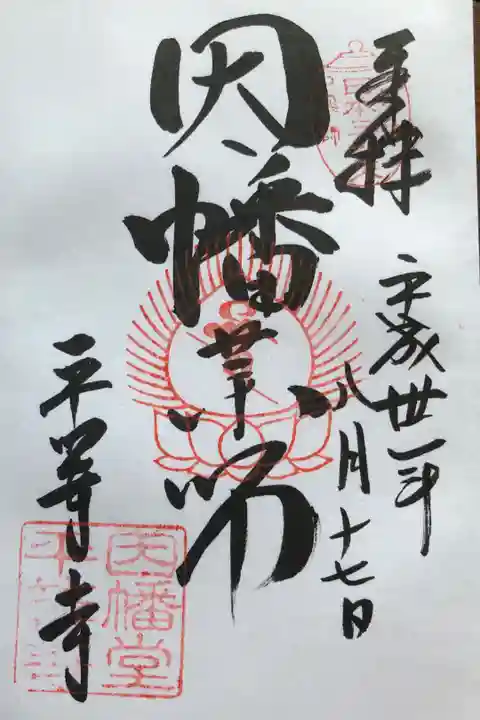 奉拝
平成丗年
八月十七日
因幡薬師
平等寺
因幡堂
平等寺